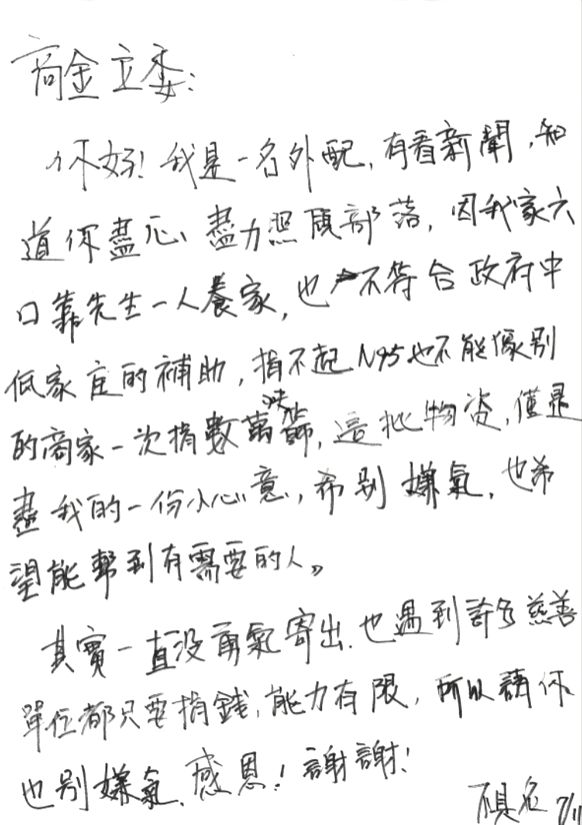 高金立委:
你好!我是一名外配,有看新聞,知
道你盡心 盡力照顧部落,因我家六
口靠先生一人養家,也不符合政府中
低家庄的補助,捐不起N95也不能像別
的商家一次捐數萬快篩,這批物資,僅是
盡我的一份小心意,希别嫌氣,也希
望能幫到有需要的人。
其實一直没勇氣寄出.也遇到許多慈善
單位都只要捐錢,能力有限,所以請你
也别嫌氣、感恩!謝謝!
不具名 7/11